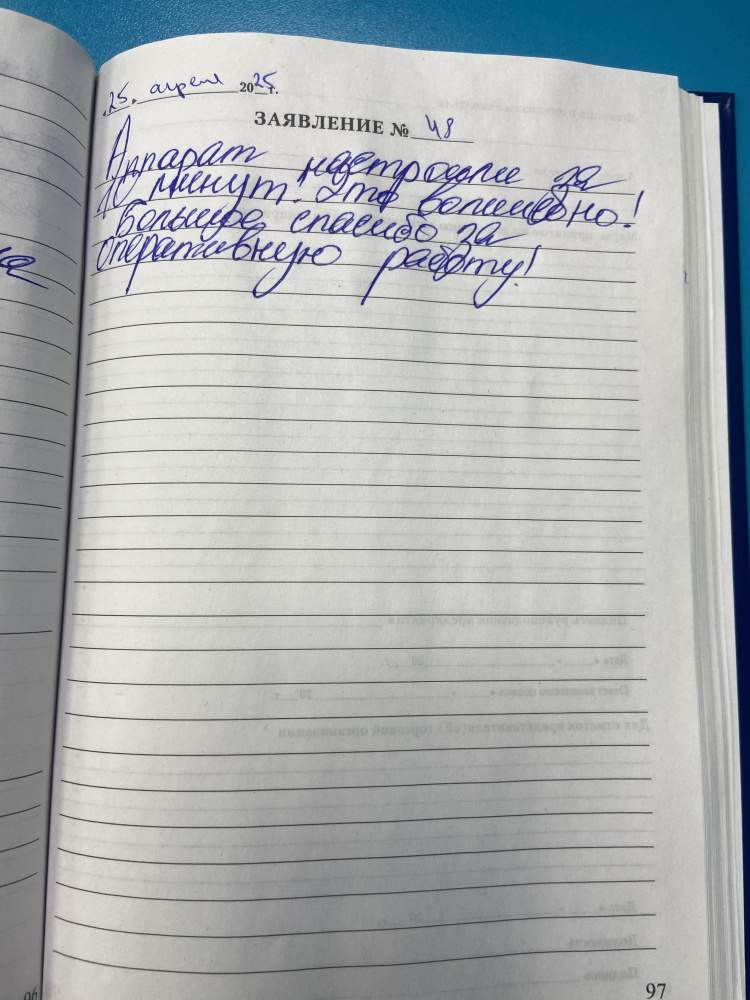 25. апреля 2025 г.
ЗАЯВЛЕНИЕ № 48
Аппарат настроили за
10 минут! Это волшебно!
Большое спасибо за
оперативную работу!
97